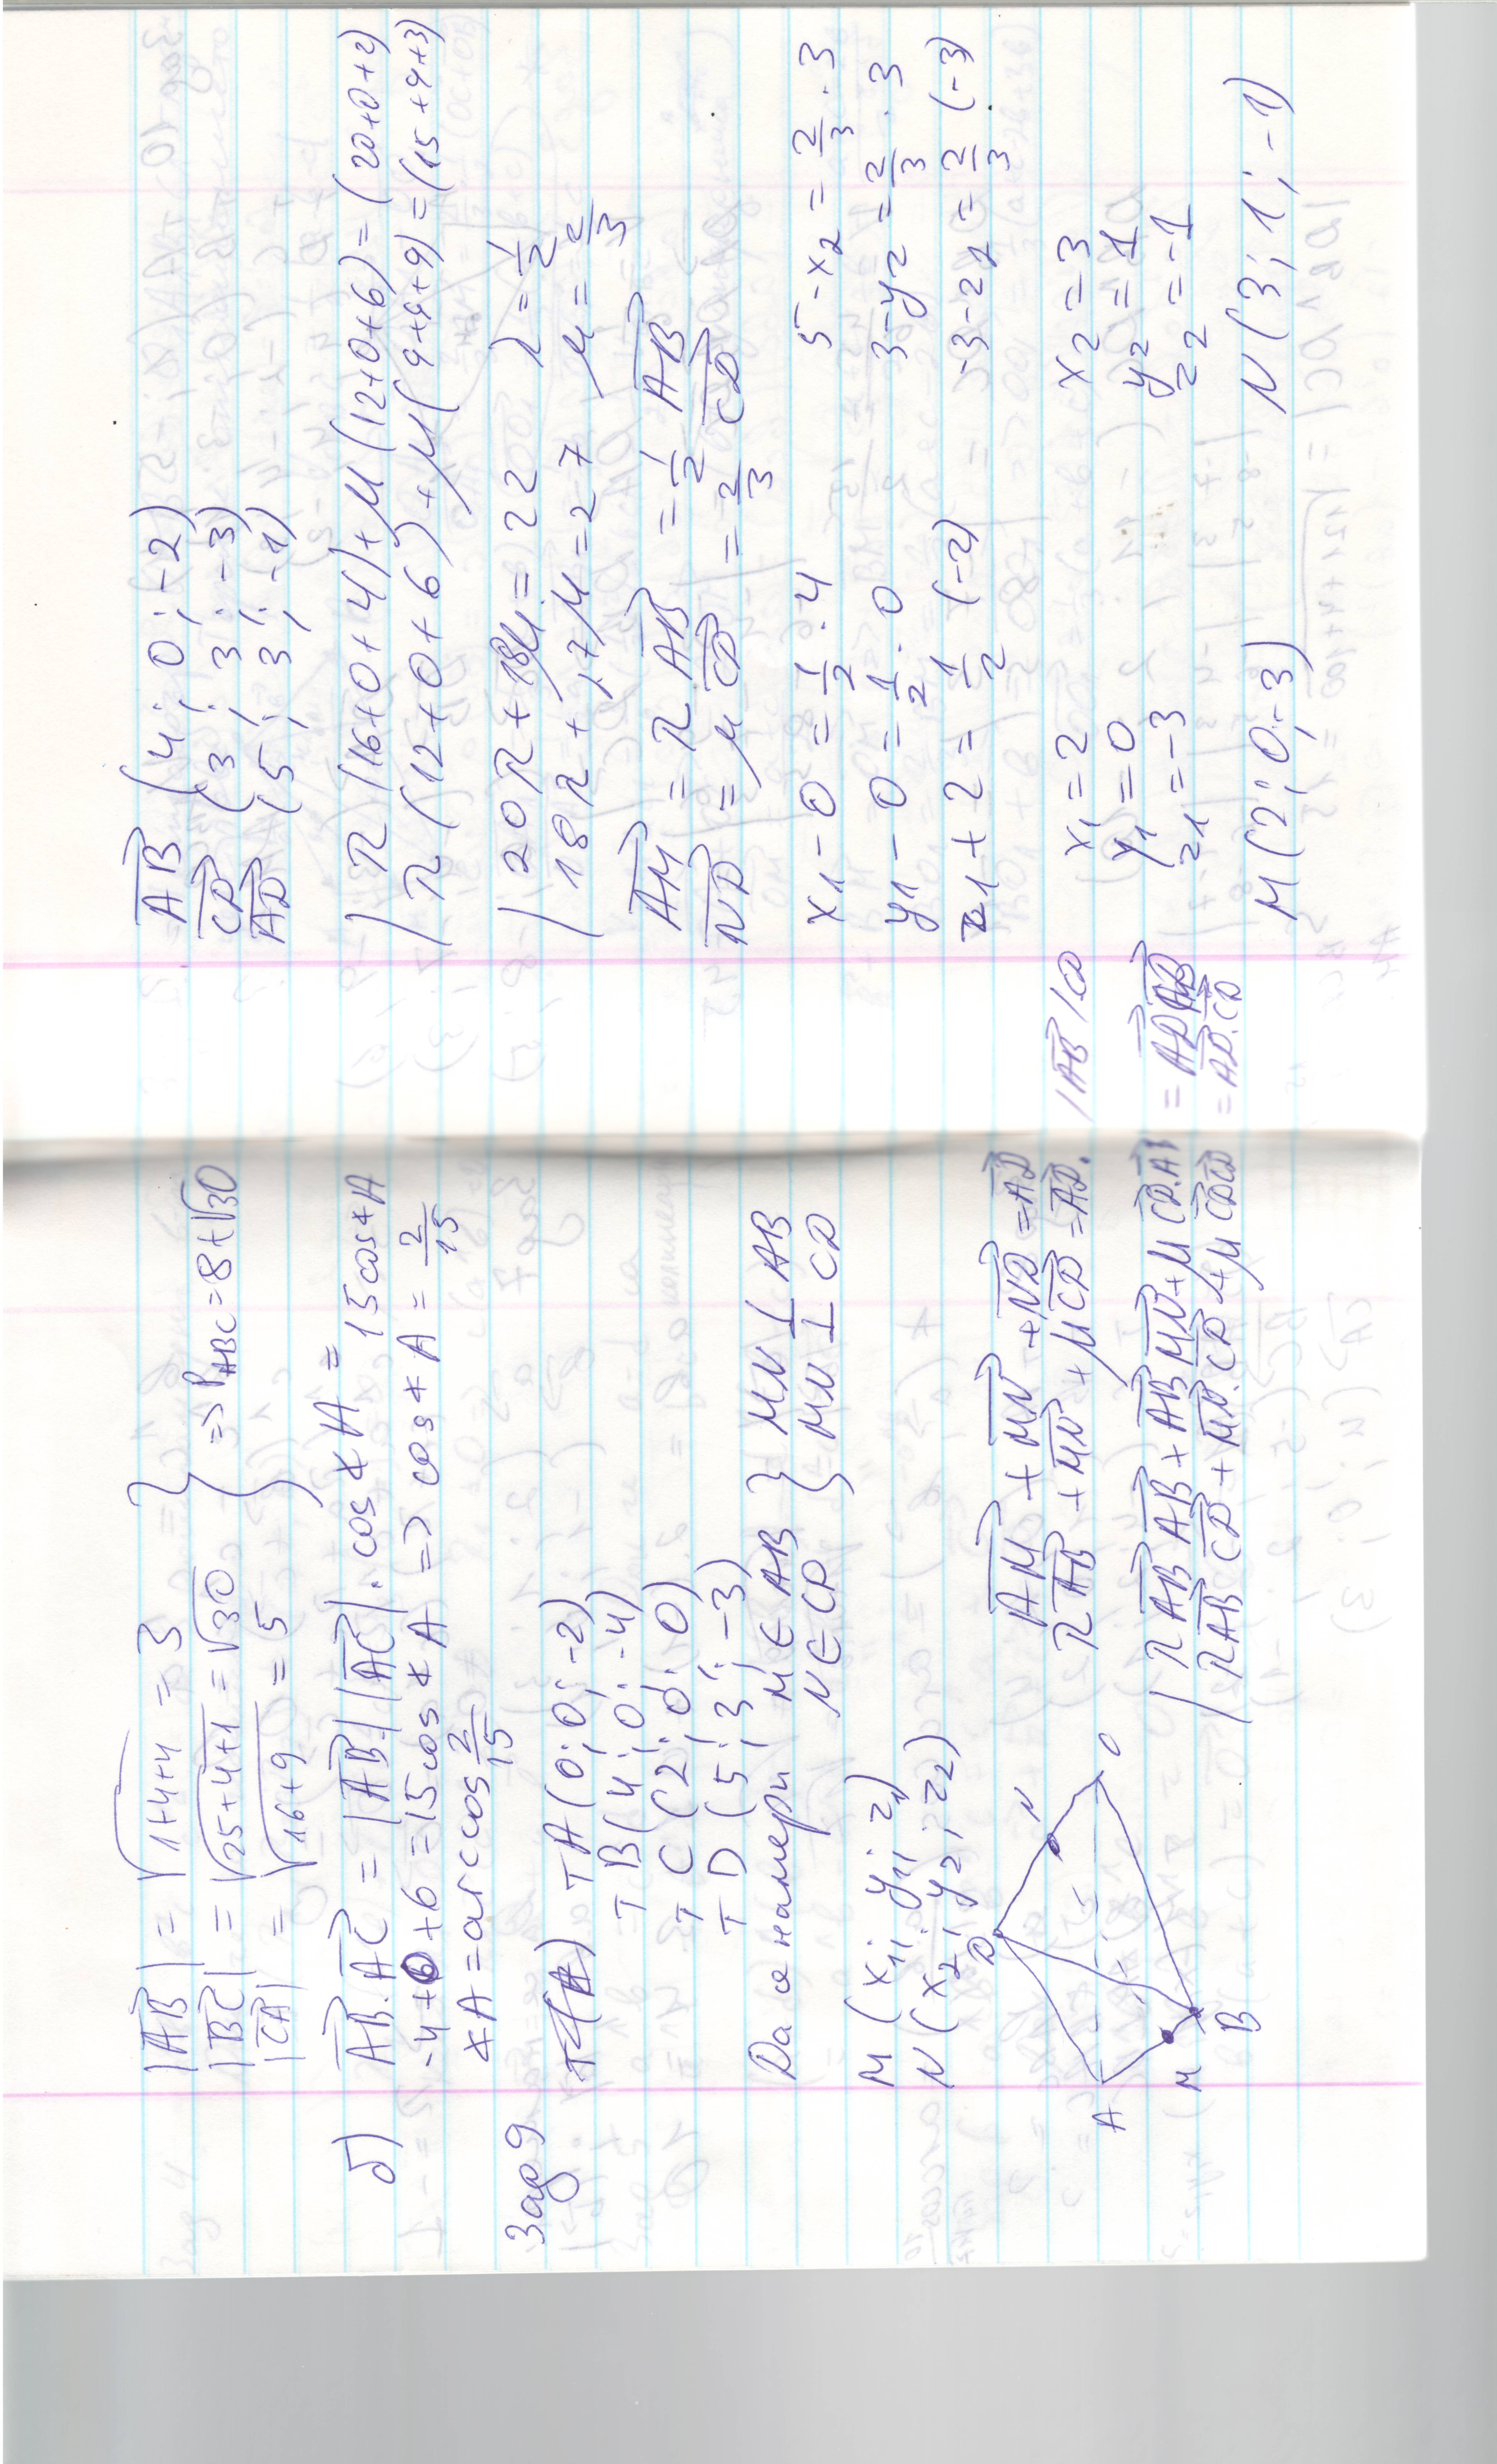 |AB| = √1+4+4 = 3
|BC| = √25+4+1 = √30
|CA| = √16+9 = 5
} => P_ABC = 8+√30
б) AB.AC = |AB||AC|. cos∢A =
-4+6+6 = 15cos∢A => cos∢A = 2/15
15cos∢A
∢A = arccos 2/15
Зад 9
т A (0; 0; -2)
т B (4; 0; -4)
т C (2; 0; 0)
т D (5; 3; -3)
Да се намери M ∈ AB } MN ⊥ AB
N ∈ CD } MN ⊥ CD
M (x1; y1; z1)
N (x2; y2; z2)
D N
A M B
AM + MN + ND = AD
λAB + MN + μCD = AD. /AB /CD
| λ AB AB + AB MN + μ CD.AB = AD AB
| λ AB CD + MN.CD + μ CD CD = AD.CD
AB (4; 0; -2)
CD (3; 3; -3)
AD (5; 3; -1)
| λ (16+0+4) + μ (12+0+6) = (20+0+2)
| λ (12+0+6) + μ (9+9+9) = (15+9+3)
| 20λ + 18μ = 22 λ = 1/2
| 18λ + 27μ = 27 μ = 2/3
AM = λ AB = 1/2 AB
ND = μ CD = 2/3 CD
x1 - 0 = 1/2 . 4 5 - x2 = 2/3 . 3
y1 - 0 = 1/2 . 0 3 - y2 = 2/3 . 3
z1 + 2 = 1/2 (-2) -3 - z2 = 2/3 . (-3)
x1 = 2 x2 = 3
y1 = 0 y2 = 1
z1 = -3 z2 = -1
M (2; 0; -3) N (3; 1; -1)